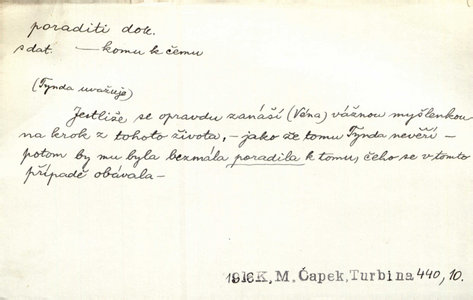 poraditi dok.
s dat. — komu k čemu
(Tynda uvažuje)
Jestliže se opravdu zanáší (Véna) vážnou myšlenkou
na krok z tohoto života, – jako že tomu Tynda nevěří –
potom by mu byla bezmála poradila k tomu, čeho se v tomto
případě obávala –
1916 K, M. Čapek, Turbina 440, 10.